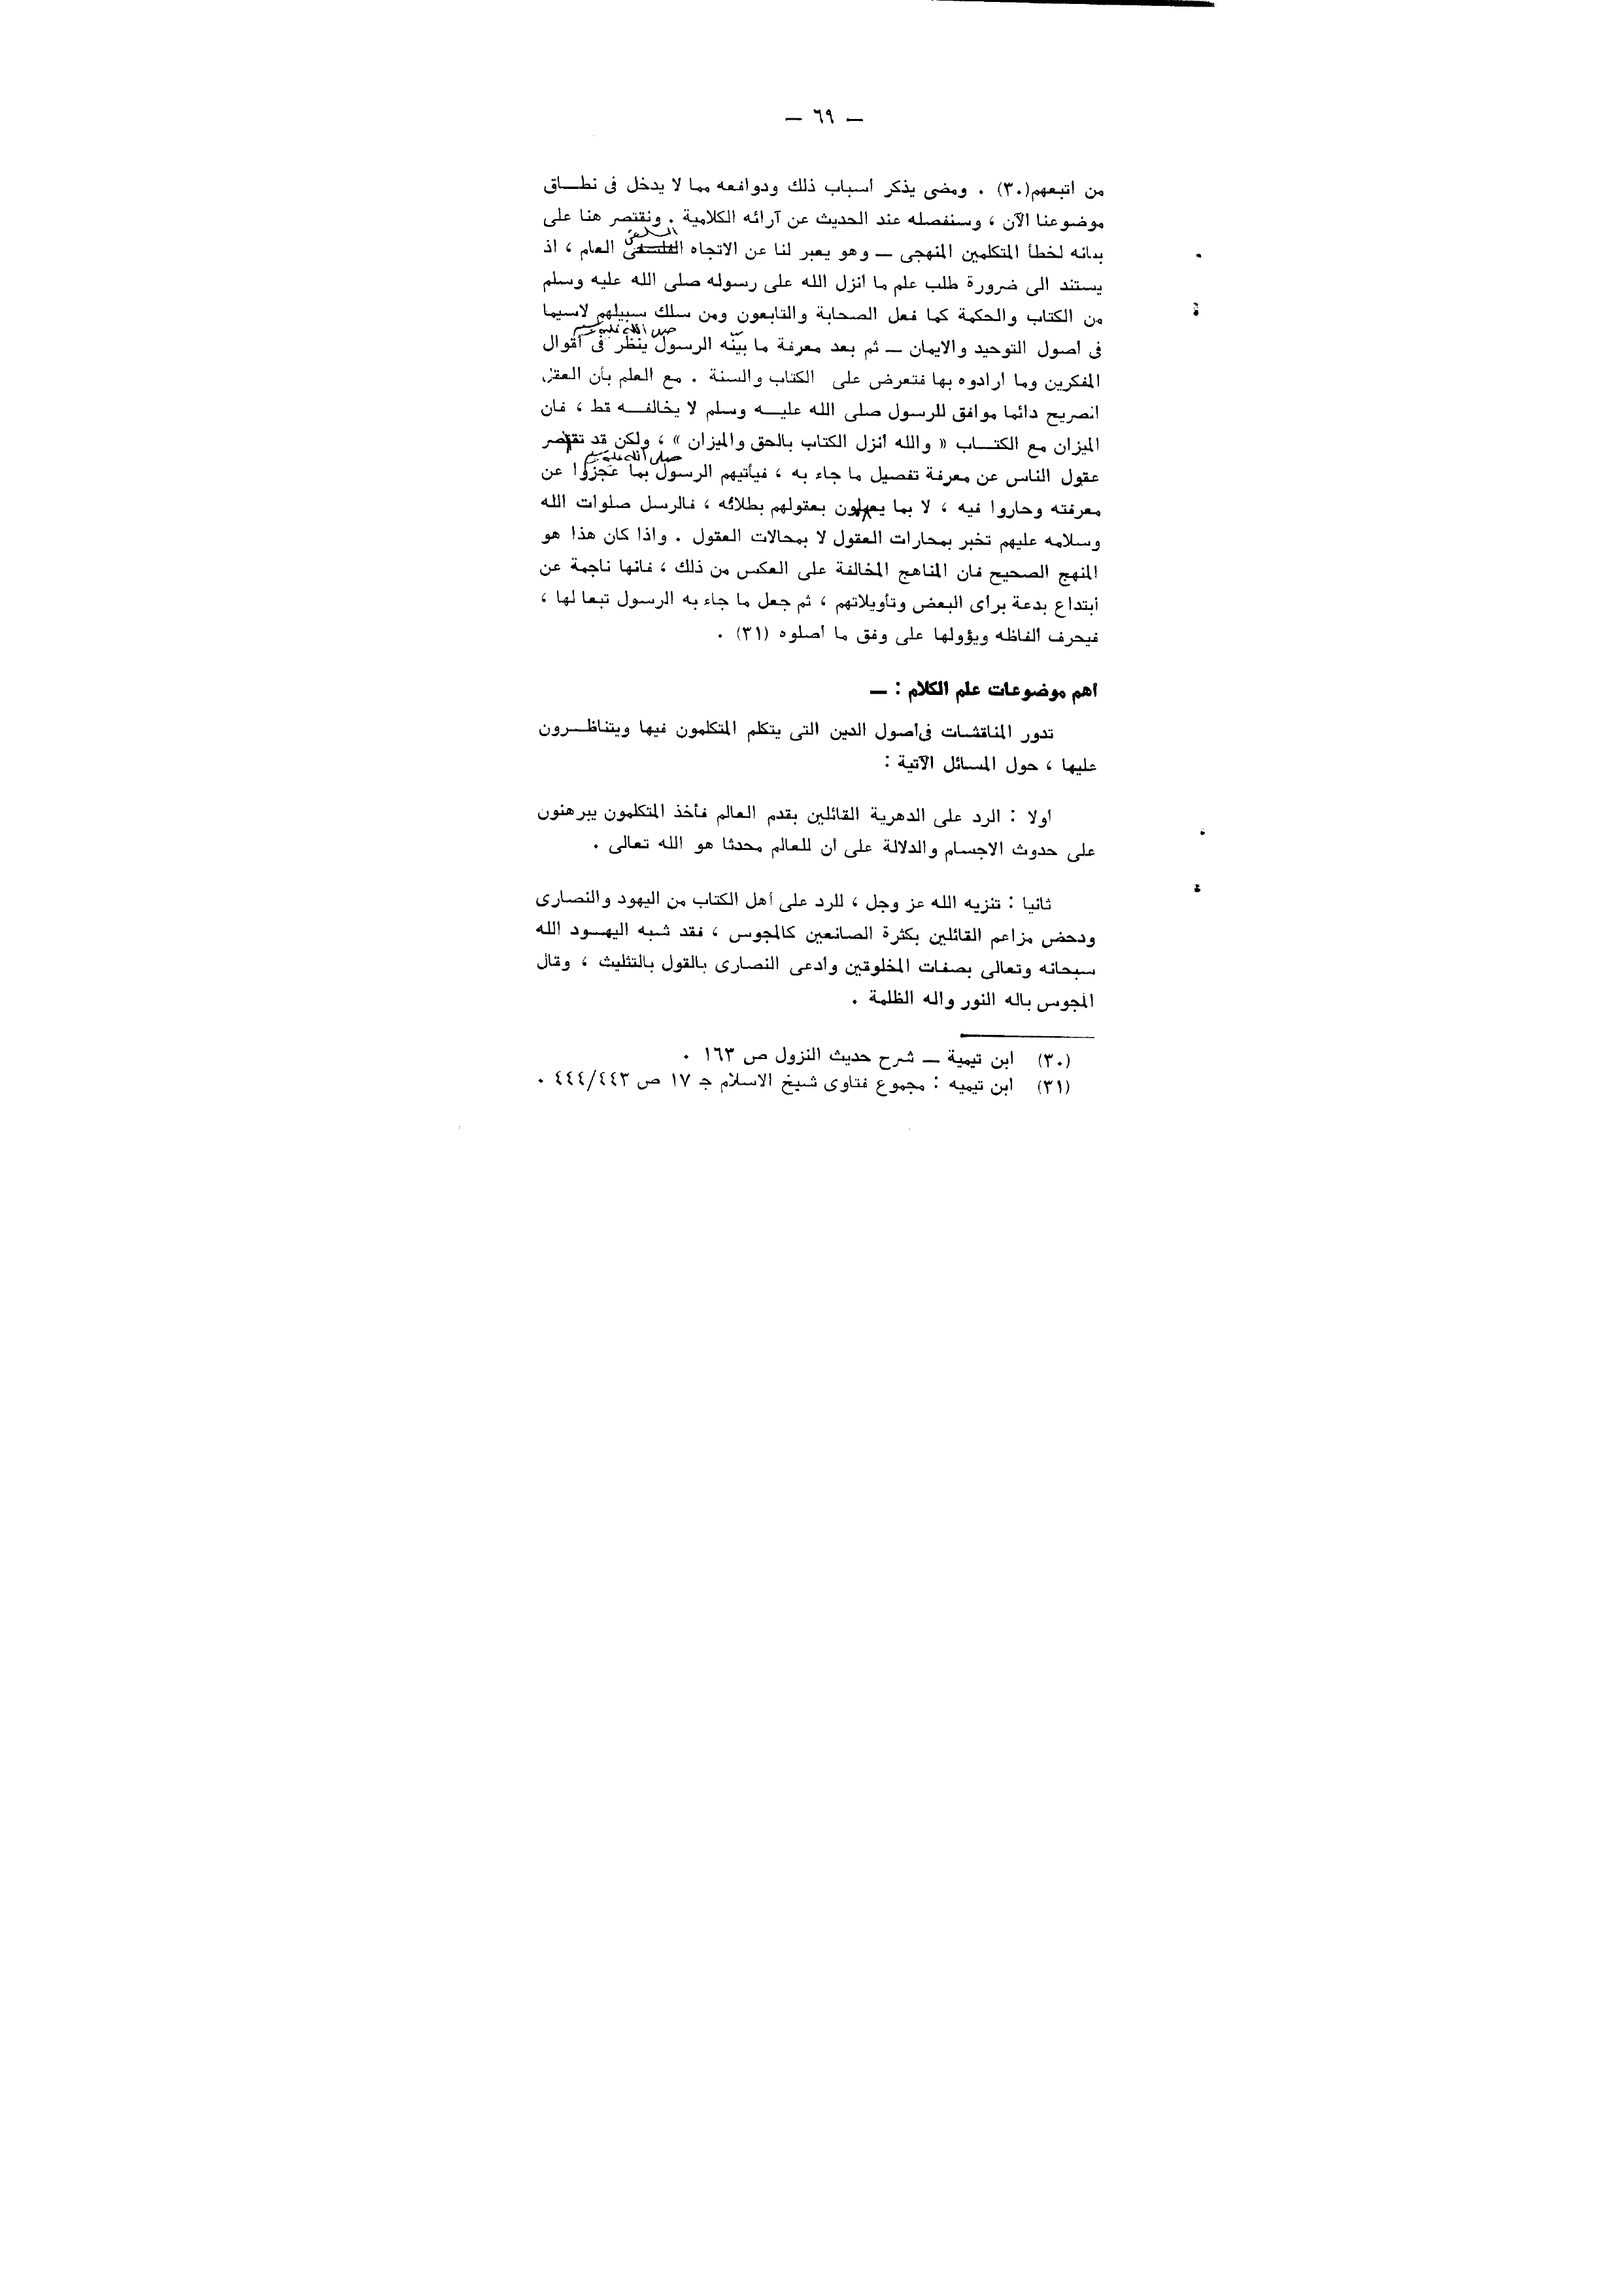 — ٦٩ —
من اتبعهم(٣٠) . ومضى يذكر أسباب ذلك ودوافعه مما لا يدخل فى نطـــاق
موضوعنا الآن ، وسنفصله عند الحديث عن آرائه الكلامية . ونقتصر هنا على
السلفى
بيانه لخطأ المتكلمين المنهجى — وهو يعبر لنا عن الاتجاه الفلسفى العام ، اذ
يستند الى ضرورة طلب علم ما أنزل الله على رسوله صلى الله عليه وسلم
من الكتاب والحكمة كما فعل الصحابة والتابعون ومن سلك سبيلهم لاسيما
صلى الله عليه وسلم
فى أصول التوحيد والايمان — ثم بعد معرفة ما بيّنه الرسول ينظر فى أقوال
المفكرين وما أرادوه بها فتعرض على الكتاب والسنة . مع العلم بأن العقل
الصريح دائما موافق للرسول صلى الله عليـــه وسلم لا يخالفـــه قط ، فان
الميزان مع الكتـــاب « والله أنزل الكتاب بالحق والميزان » ، ولكن قد تقصر
صلى الله عليه وسلم
عقول الناس عن معرفة تفصيل ما جاء به ، فيأتيهم الرسول بما عجزوا عن
معرفته وحاروا فيه ، لا بما يعلمون بعقولهم بطلانه ، فالرسل صلوات الله
وسلامه عليهم تخبر بمحارات العقول لا بمحالات العقول . واذا كان هذا هو
المنهج الصحيح فان المناهج المخالفة على العكس من ذلك ، فانها ناجمة عن
ابتداع بدعة برأى البعض وتأويلاتهم ، ثم جعل ما جاء به الرسول تبعا لها ،
فيحرف ألفاظه ويؤولها على وفق ما أصلوه (٣١) .
أهم موضوعات علم الكلام : —
تدور المناقشات فى أصول الدين التى يتكلم المتكلمون فيها ويتناظـــرون
عليها ، حول المسائل الآتية :
أولا : الرد على الدهرية القائلين بقدم العالم فأخذ المتكلمون يبرهنون
على حدوث الاجسام والدلالة على أن للعالم محدثا هو الله تعالى .
ثانيا : تنزيه الله عز وجل ، للرد على أهل الكتاب من اليهود والنصارى
ودحض مزاعم القائلين بكثرة الصانعين كالمجوس ، فقد شبه اليهـــود الله
سبحانه وتعالى بصفات المخلوقين وادعى النصارى بالقول بالتثليث ، وقال
المجوس باله النور واله الظلمة .
(٣٠) ابن تيمية — شرح حديث النزول ص ١٦٣ .
(٣١) ابن تيميه : مجموع فتاوى شيخ الاسلام جـ ١٧ ص ٤٤٤/٤٤٣ .